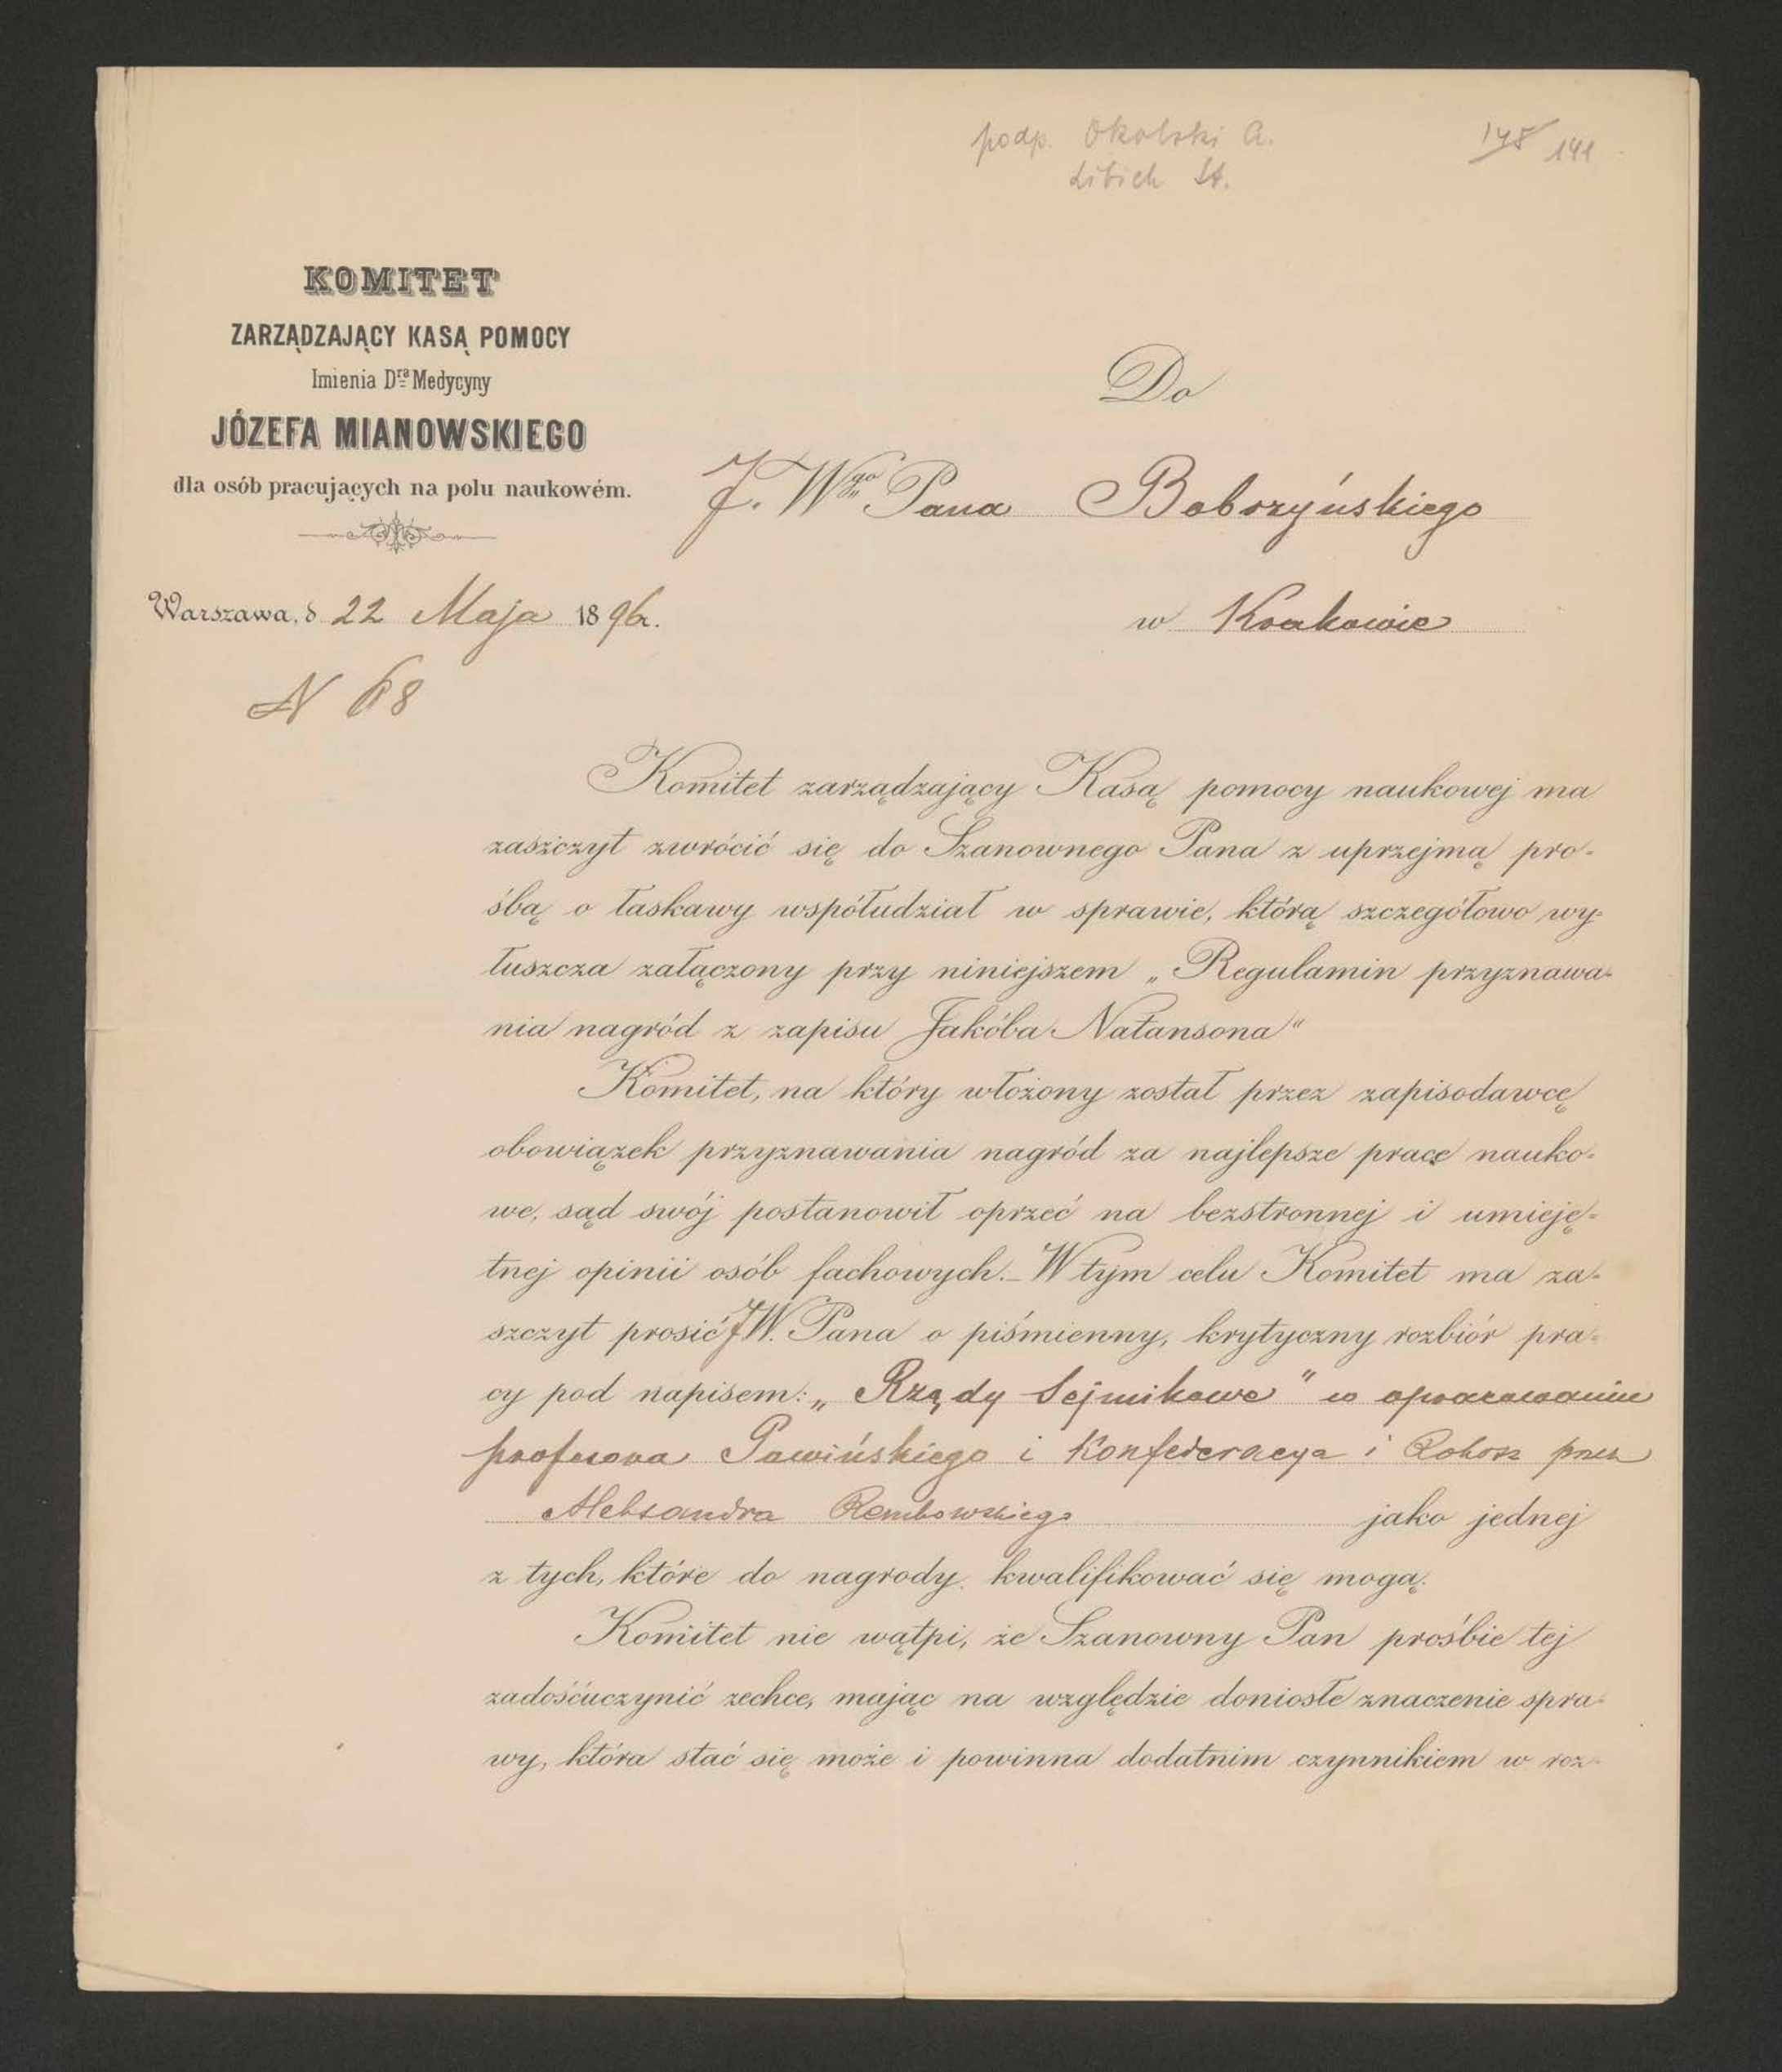 podp. Okolski A.
Libich St.
148 141
KOMITET
ZARZĄDZAJĄCY KASĄ POMOCY
Imienia Dra Medycyny
JÓZEFA MIANOWSKIEGO
dla osób pracujących na polu naukowém.
Warszawa, d 22 Maja 1896 r.
N 68
Do
J. Wgo Pana Bobrzyńskiego
w Krakowie
Komitet zarządzający Kasą pomocy naukowej ma
zaszczyt zwrócić się do Szanownego Pana z uprzejmą pro-
śbą o łaskawy współudział w sprawie, którą szczegółowo wy-
łuszcza załączony przy niniejszem „Regulamin przyznawa-
nia nagród z zapisu Jakóba Natansona"
Komitet, na który włożony został przez zapisodawcę
obowiązek przyznawania nagród za najlepsze prace nauko-
we, sąd swój postanowił oprzeć na bezstronnej i umieję-
tnej opinii osób fachowych.- W tym celu Komitet ma za-
szczyt prosić JW. Pana o piśmienny, krytyczny rozbiór pra-
cy pod napisem: „Rządy Sejmikowe" w opracowaniu
profesora Pawińskiego i Konfederacya i Rokosz przez
Aleksandra Rembowskiego jako jednej
z tych, które do nagrody kwalifikować się mogą.
Komitet nie wątpi, że Szanowny Pan prośbie tej
zadośćuczynić zechce, mając na względzie doniosłe znaczenie spra-
wy, która stać się może i powinna dodatnim czynnikiem w roz-